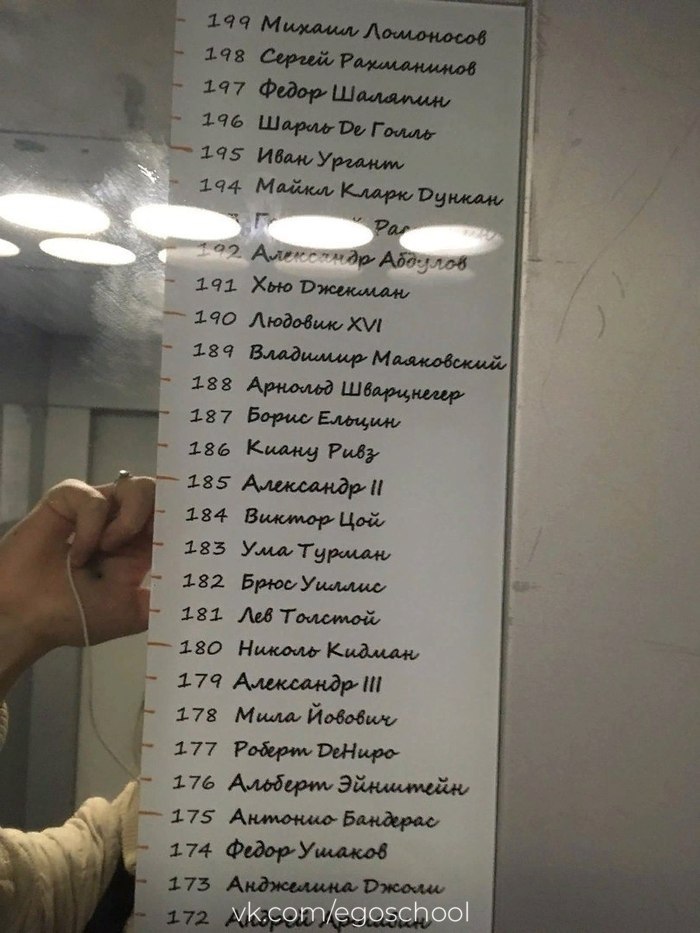 199 Михаил Ломоносов
198 Сергей Рахманинов
197 Федор Шаляпин
196 Шарль Де Голль
195 Иван Ургант
194 Майкл Кларк Дункан
192 Александр Абдулов
191 Хью Джекман
190 Людовик XVI
189 Владимир Маяковский
188 Арнольд Шварцнегер
187 Борис Ельцин
186 Киану Ривз
185 Александр II
184 Виктор Цой
183 Ума Турман
182 Брюс Уиллис
181 Лев Толстой
180 Николь Кидман
179 Александр III
178 Мила Йовович
177 Роберт ДеНиро
176 Альберт Эйнштейн
175 Антонио Бандерас
174 Федор Ушаков
173 Анджелина Джоли
172 Андрей
vk.com/egoschool